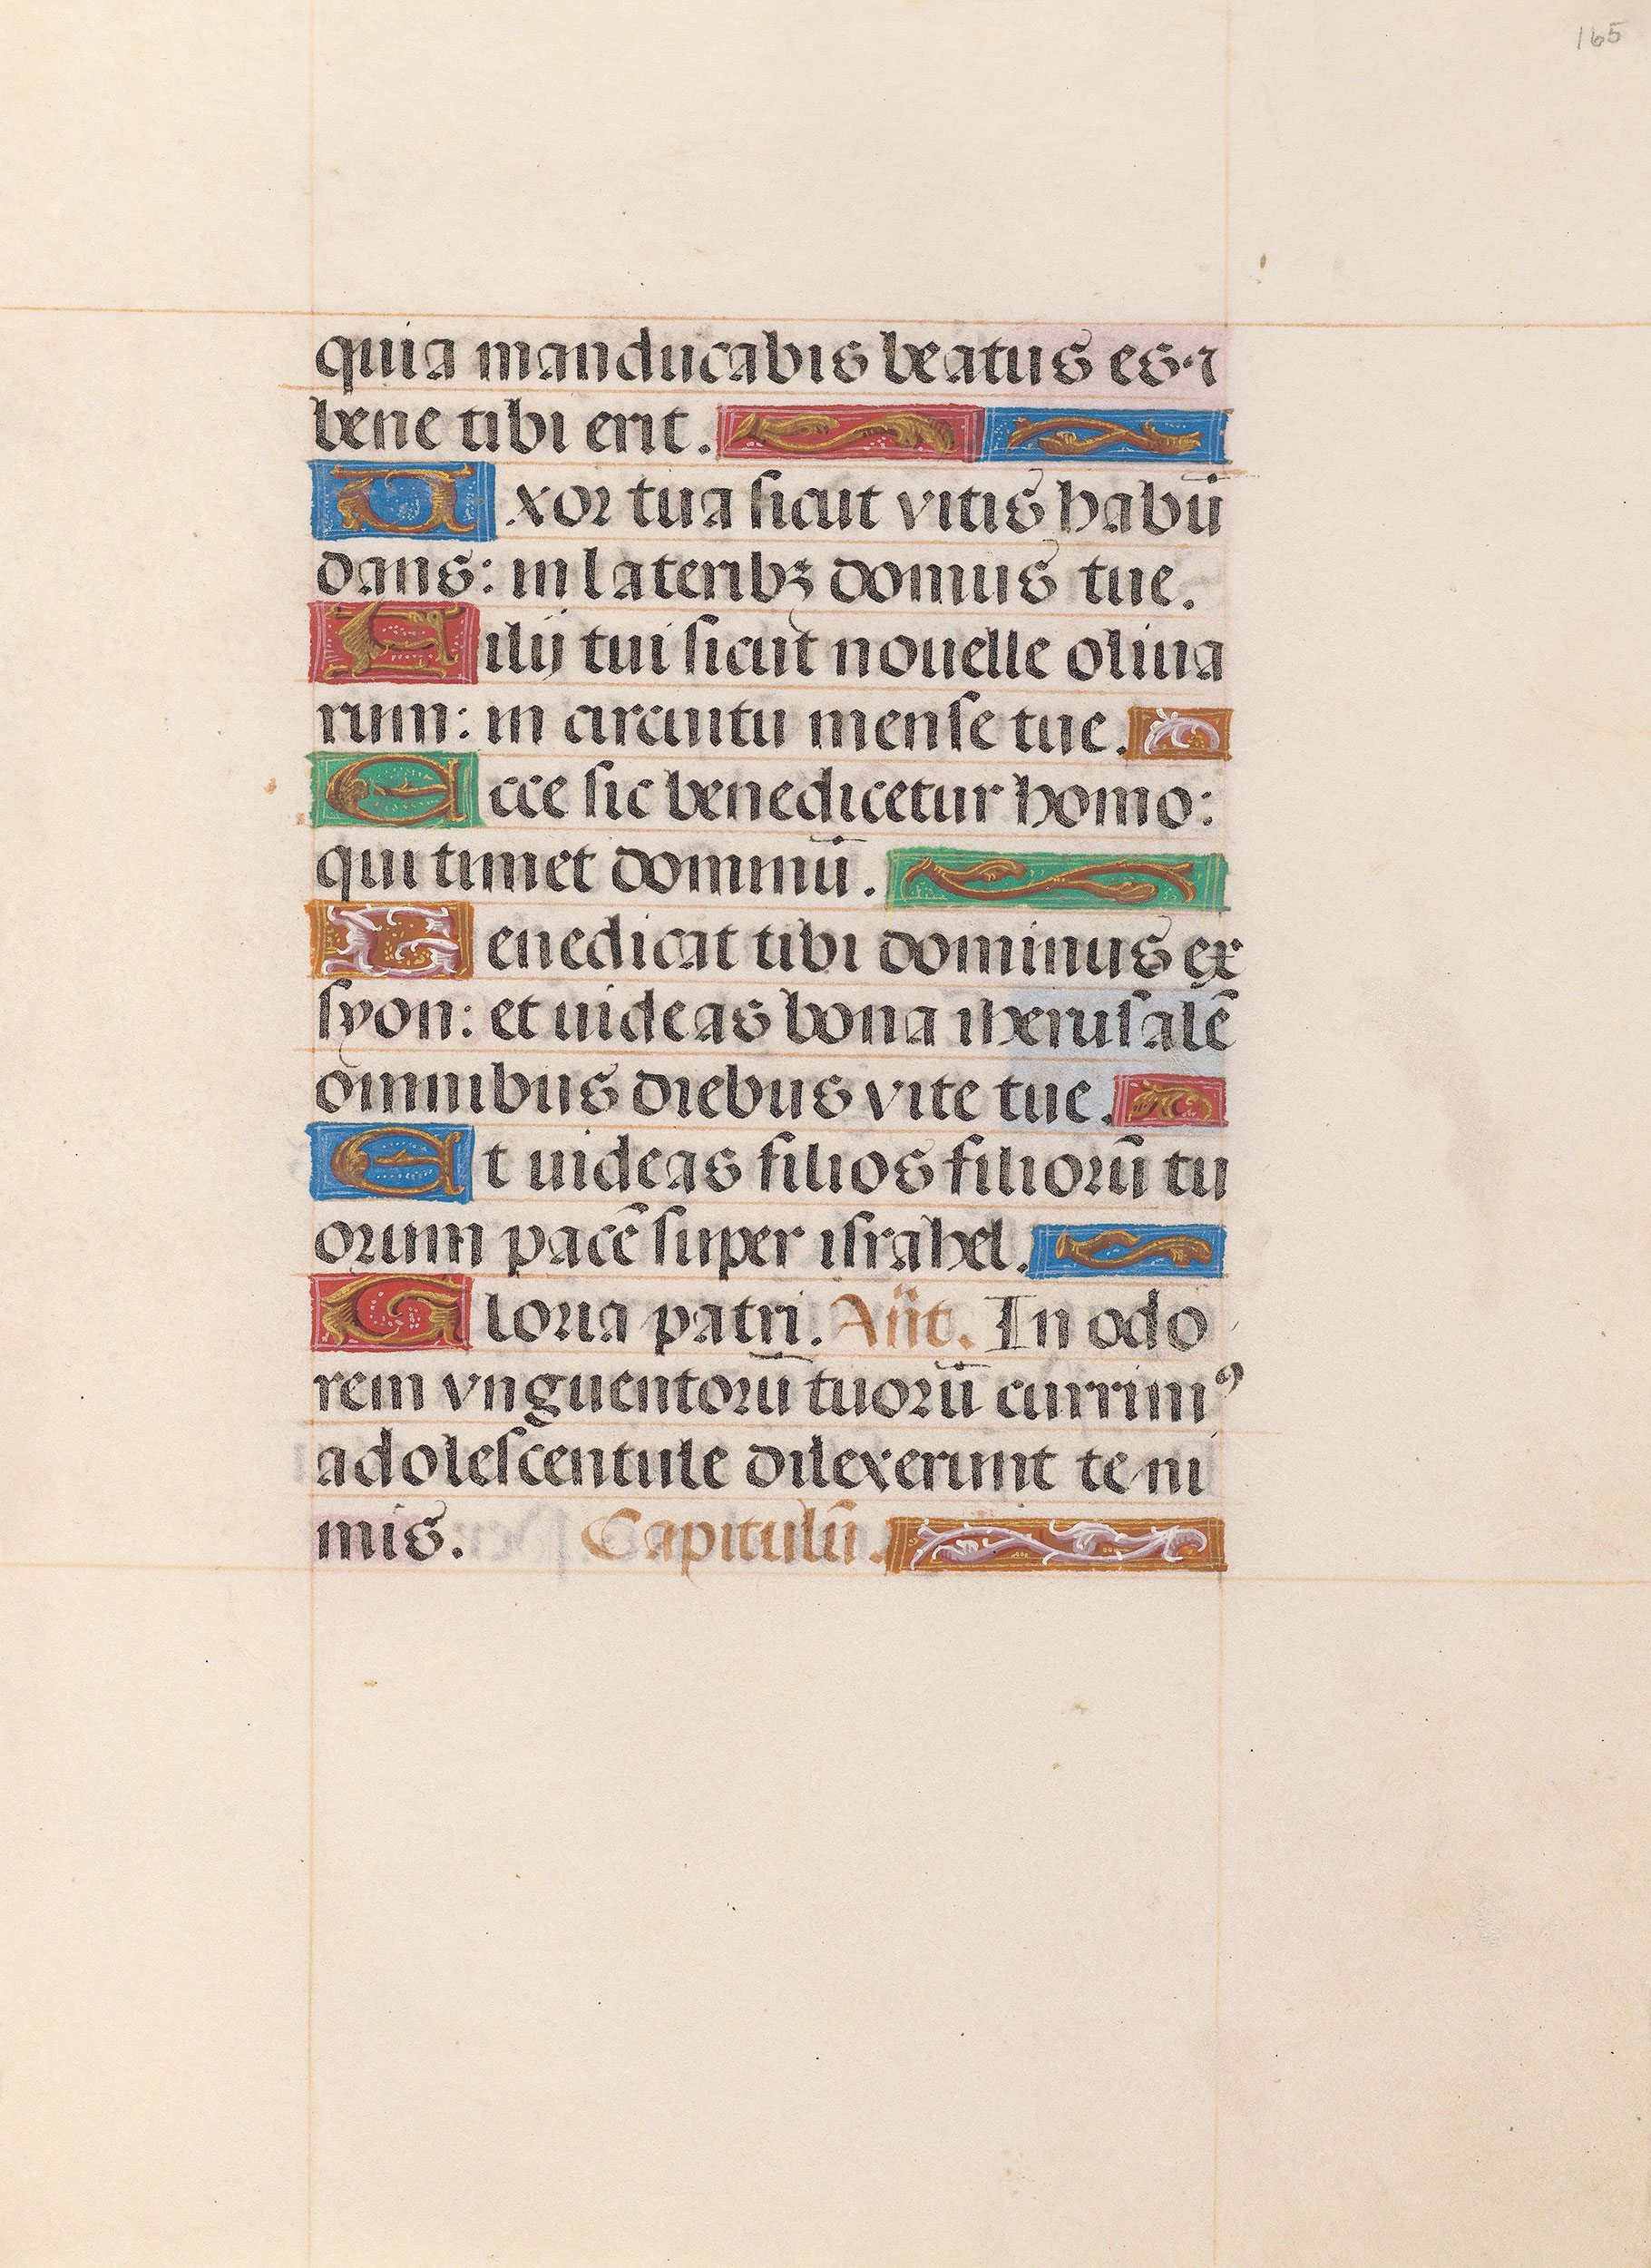 165
quia manducabis beatus es ⁊
bene tibi erit.
Uxor tua sicut vitis habū
dans: in lateribꝫ domus tue.
Filij tui sicut nouelle oliua
rum: in circuitu mense tue.
Ecce sic benedicetur homo:
qui timet dominū.
Benedicat tibi dominus ex
syon: et uideas bona iherusalē
omnibus diebus vite tue.
Et uideas filios filiorū tu
orum pacē super israhel.
Gloria patri. Añt. In odo
rem vnguentorū tuorū currimꝰ
adolescentule dilexerunt te ni
mis. Capitulū.